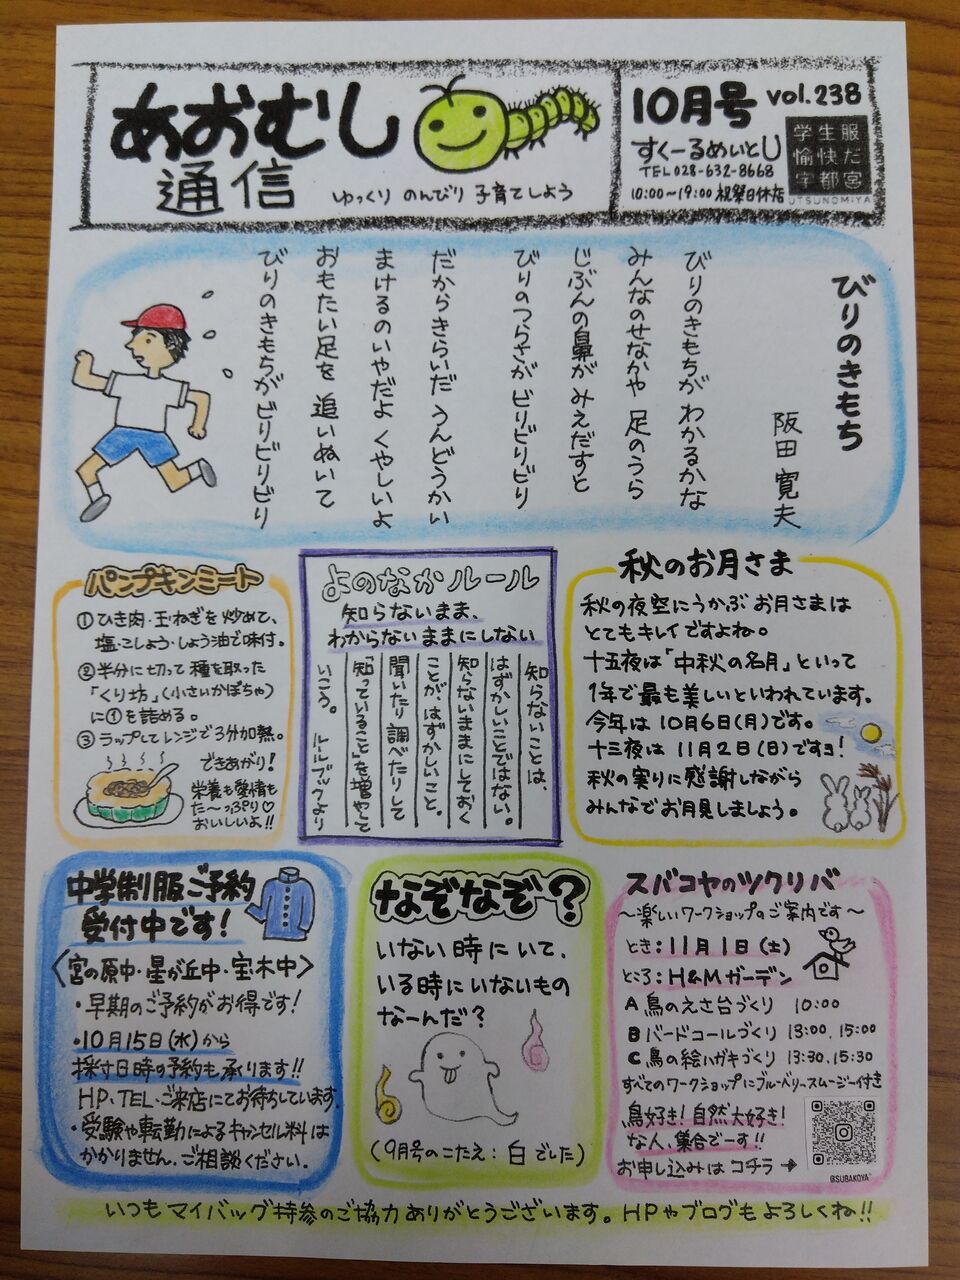 あおむし
通信
ゆっくり のんびり 子育てしよう
10月号 vol.238
すくーるめいとU
TEL 028-632-8668
10:00～19:00 祝祭日休店
学生服
愉快だ
宇都宮
UTSUNOMIYA
びりのきもち
阪田寛夫
びりのきもちが わかるかな
みんなのせなかや 足のうら
じぶんの鼻が みえだすと
びりのつらさが ビリビリビリ
だからきらいだ うんどうかい
まけるのいやだよ くやしいよ
おもたい足を 追いぬいて
びりのきもちが ビリビリビリ
パンプキンミート
①ひき肉・玉ねぎを炒めて、
塩・こしょう・しょう油で味付。
②半分に切って種を取った
「くり坊」(小さいかぼちゃ)
に①を詰める。
③ラップしてレンジで3分加熱。
できあがり!
栄養も愛情も
た～っぷり♡
おいしいよ!!
よのなかルール
知らないまま、
わからないままにしない
知らないことは、
はずかしいことではない。
知らないままにしておく
ことが、はずかしいこと。
聞いたり 調べたりして
「知っていること」を増やして
いこう。 ルールブックより
秋のお月さま
秋の夜空にうかぶ お月さまは
とてもキレイですよね。
十五夜は「中秋の名月」といって
1年で最も美しいといわれています。
今年は 10月6日(月)です。
十三夜は 11月2日(日)ですヨ!
秋の実りに感謝しながら
みんなで お月見しましょう。
中学制服ご予約
受付中です!
〈宮の原中・星が丘中・宝木中〉
・早期のご予約がお得です!
・10月15日(水)から
採寸日時の予約も承ります!!
HP、TEL、ご来店にてお待ちしています。
・受験や転勤によるキャンセル料は
かかりません。ご相談ください。
なぞなぞ?
いない時にいて、
いる時にいないもの
なーんだ?
(9月号のこたえ:白でした)
スバコヤのツクリバ
～楽しいワークショップのご案内です～
とき:11月1日(土)
ところ:H&Mガーデン
A 鳥のえさ台づくり 10:00
B バードコールづくり 13:00、15:00
C 鳥の絵ハガキづくり 13:30、15:30
すべてのワークショップにブルーベリースムージー付き
鳥好き!自然大好き!
な人、集合でーす!!
お申し込みは コチラ→
@SUBAKOYA
いつもマイバッグ持参のご協力ありがとうございます。HPやブログもよろしくね!!